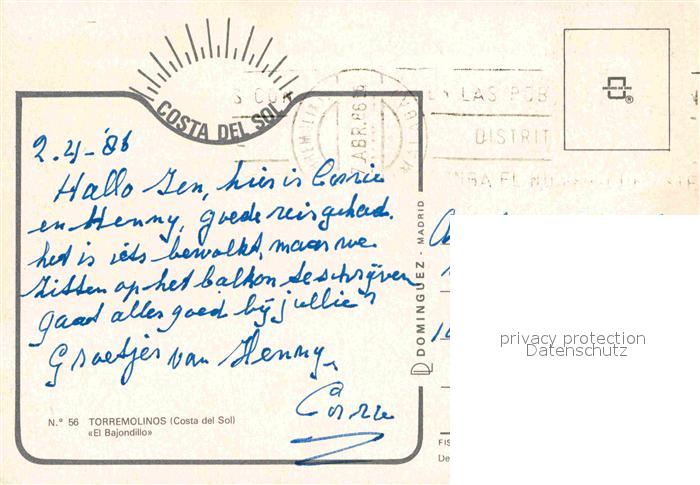 COSTA DEL SOL
LAS POB
DISTRIT
ABR.86
2.4-'86
Hallo Jen, hier is Corrie
en Henny, goede reis gehad.
het is iets bewolkt, maar we
zitten op het balkon te schrijven
gaat alles goed bij jullie?
Groetjes van Henny
Corrie
N.º 56 TORREMOLINOS (Costa del Sol)
«El Bajondillo»
DOMINGUEZ - MADRID
privacy protection
Datenschutz
FIS
De